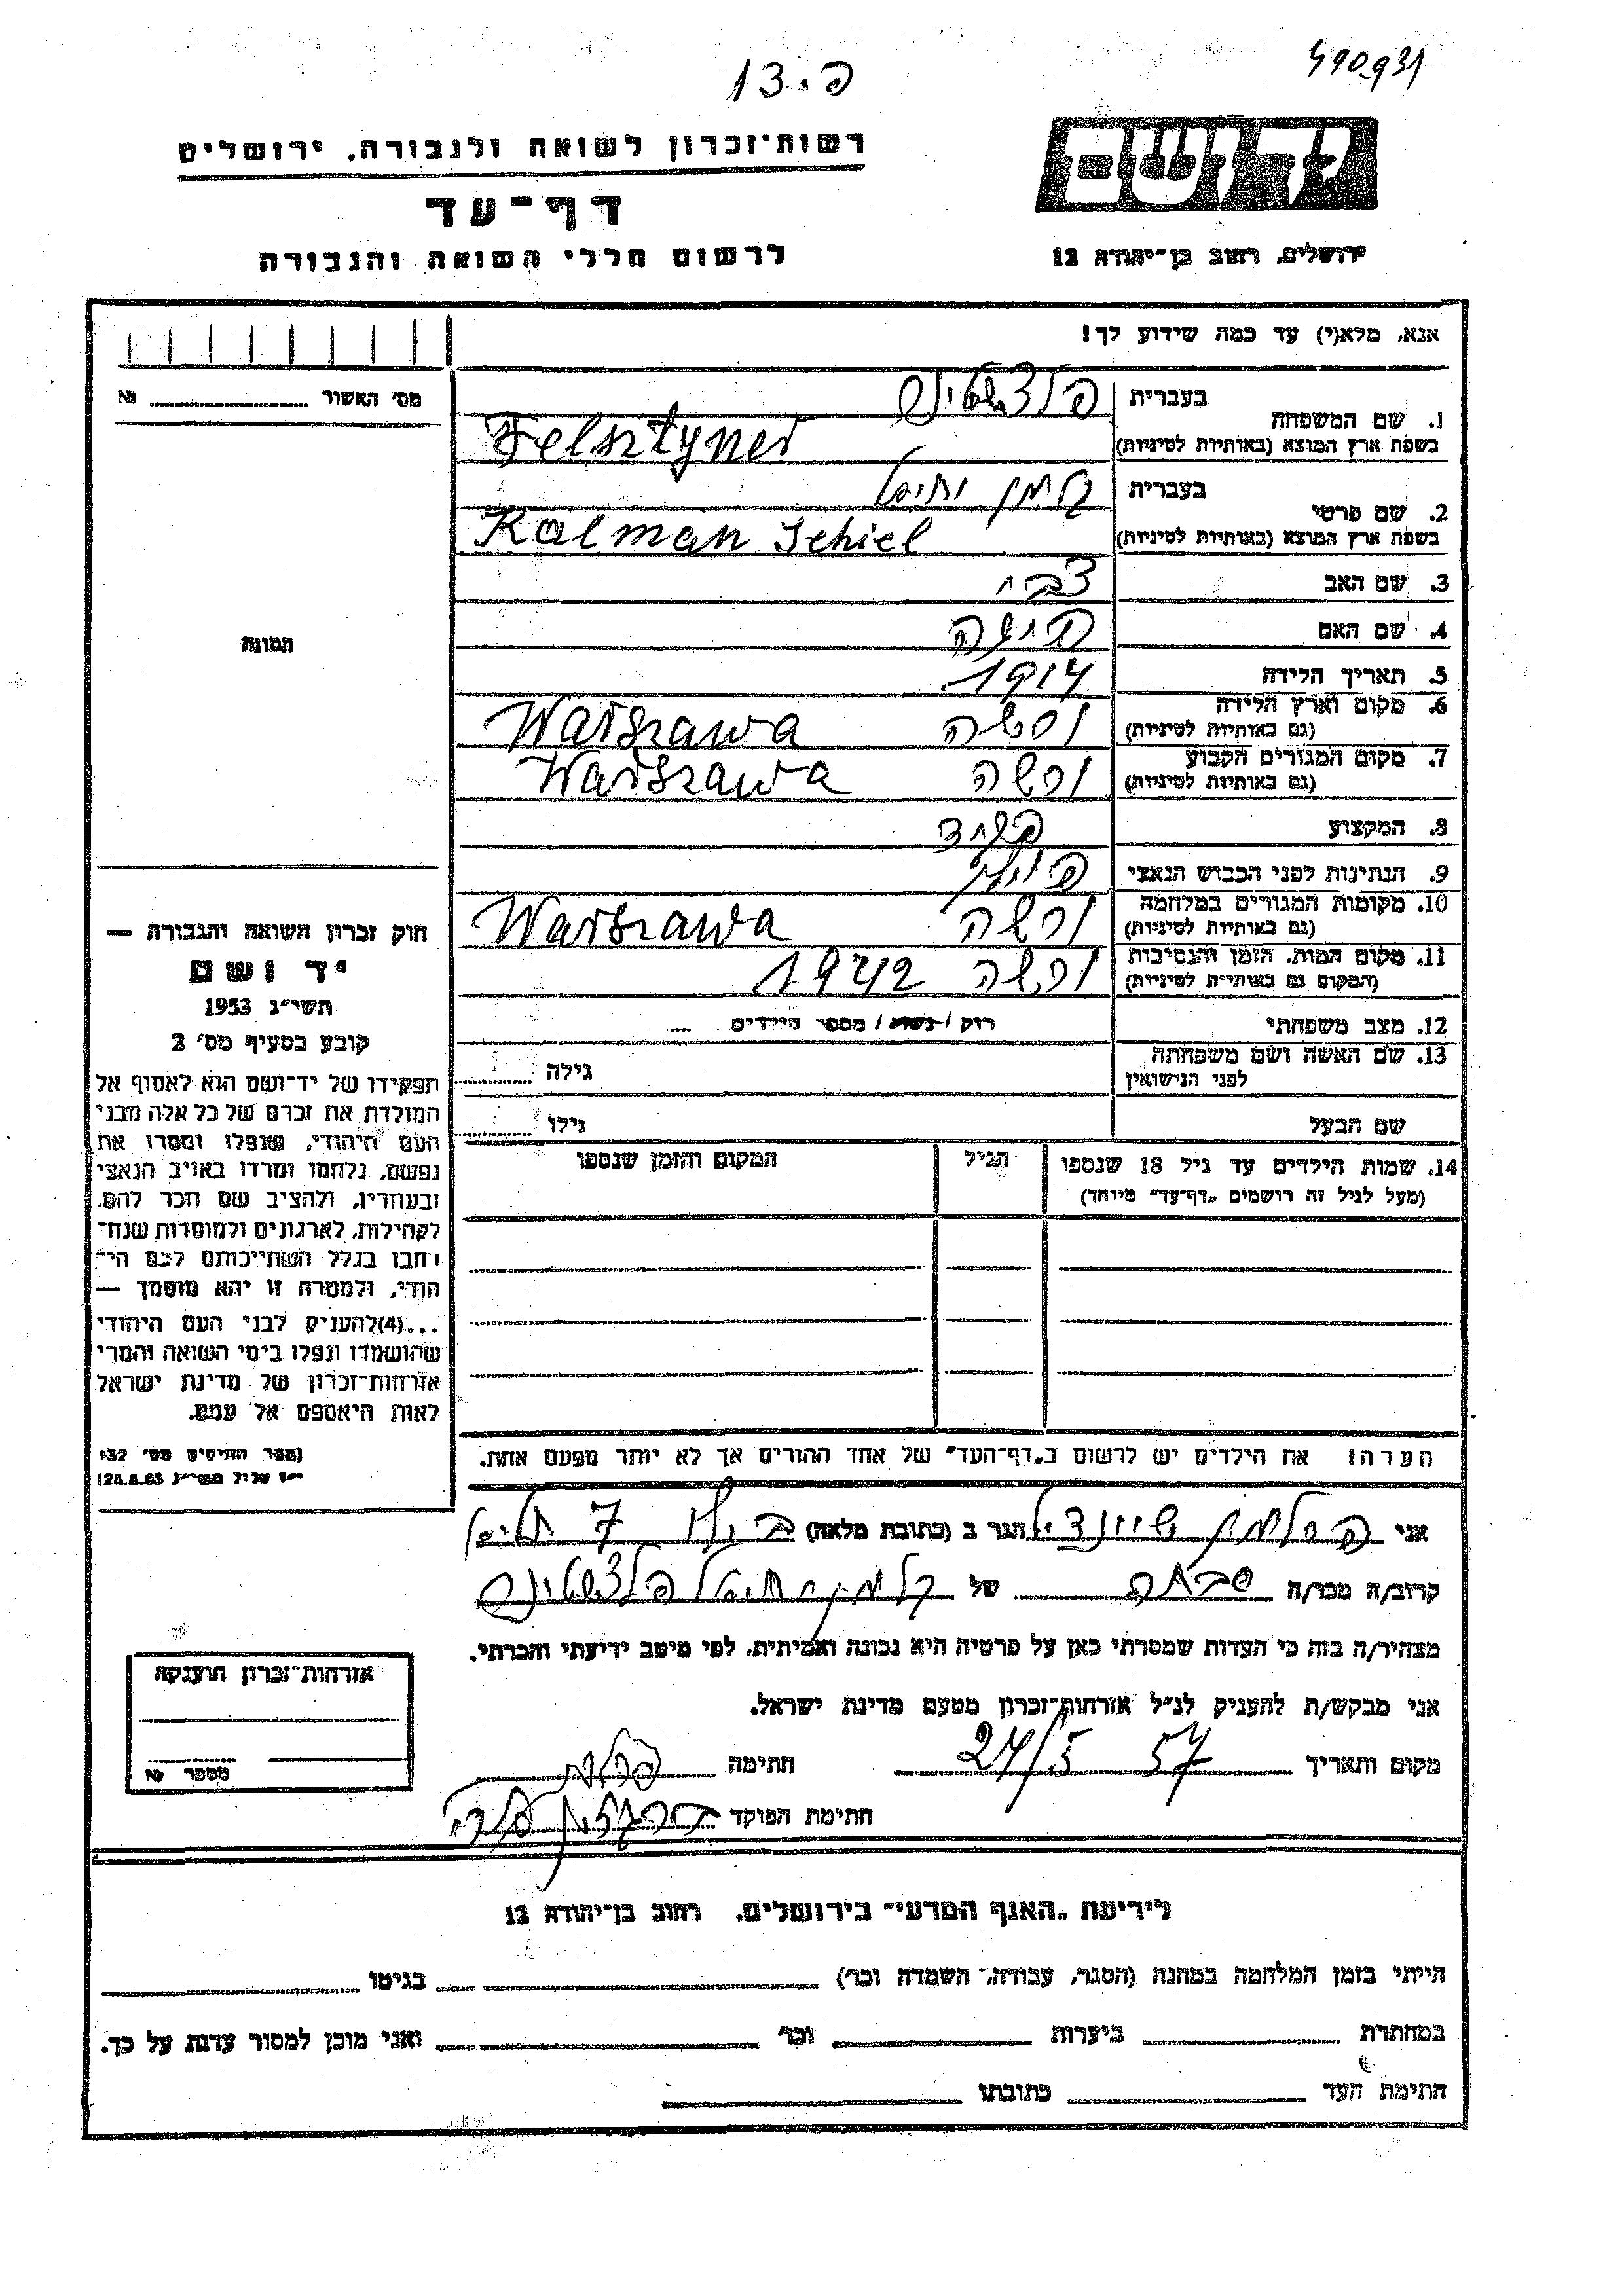 490931
פ.13
רשות־זכרון לשואה ולגבורה, ירושלים
יד ושם
דף־עד
לרשום חללי השואה והגבורה
ירושלים, רחוב בן־יהודה 12
אנא, מלא(י) עד כמה שידוע לך!
מס׳ האשור № 
1. שם המשפחה
בעברית
בשפת ארץ המוצא (באותיות לטיניות)
Felsztyner
2. שם פרטי
בעברית קלמן יחיאל
בשפת ארץ המוצא (באותיות לטיניות)
Kalman Jehiel
3. שם האב צבי
4. שם האם
תמונה
5. תאריך הלידה 1914
6. מקום וארץ הלידה ורשה Warszawa
(גם באותיות לטיניות)
7. מקום המגורים הקבוע ורשה Warszawa
(גם באותיות לטיניות)
8. המקצוע פקיד
9. הנתינות לפני הכבוש הנאצי פולין
10. מקומות המגורים במלחמה ורשה Warszawa
(גם באותיות לטיניות)
11. מקום המות, הזמן והנסיבות ורשה 1942
(המקום גם באותיות לטיניות)
12. מצב משפחתי רוק / נשוי / מספר הילדים
13. שם האשה ושם משפחתה
לפני הנישואין
גילה
שם הבעל גילו
14. שמות הילדים עד גיל 18 שנספו הגיל המקום והזמן שנספו
(מעל לגיל זה רושמים „דף־עד״ מיוחד)
הערה: את הילדים יש לרשום ב„דף־העד״ של אחד ההורים אך לא יותר מפעם אחת.
חוק זכרון השואה והגבורה —
יד ושם
תשי״ג 1953
קובע בסעיף מס׳ 2
תפקידו של יד־ושם הוא לאסוף אל
המולדת את זכרם של כל אלה מבני
העם היהודי, שנפלו ומסרו את
נפשם, נלחמו ומרדו באויב הנאצי
ובעוזריו, ולהציב שם וזכר להם,
לקהילות, לארגונים ולמוסדות שנח־
רבו בגלל השתייכותם לעם הי־
הודי, ולמטרה זו יהא מוסמך —
...(4)להעניק לבני העם היהודי
שהושמדו ונפלו בימי השואה והמרי
אזרחות־זכרון של מדינת ישראל
לאות היאספם אל עמם.
(ספר החוקים מס׳ 132
אני הגר ב (כתובת מלאה) 7
קרוב/ה מכר/ה של קלמן יחיאל
מצהיר/ה בזה כי העדות שמסרתי כאן על פרטיה היא נכונה ואמיתית, לפי מיטב ידיעתי והכרתי.
אני מבקש/ת להעניק לנ״ל אזרחות־זכרון מטעם מדינת ישראל.
מקום ותאריך 24/5 57 חתימה
חתימת הפוקד
אזרחות־זכרון הוענקה
מספר №
לידיעת „האגף המדעי״ בירושלים, רחוב בן־יהודה 12
הייתי בזמן המלחמה במחנה (הסגר, עבודה, השמדה וכו׳) בגיטו
במחתרת ביערות וכו׳ ואני מוכן למסור עדות על כך.
חתימת העד כתובתו